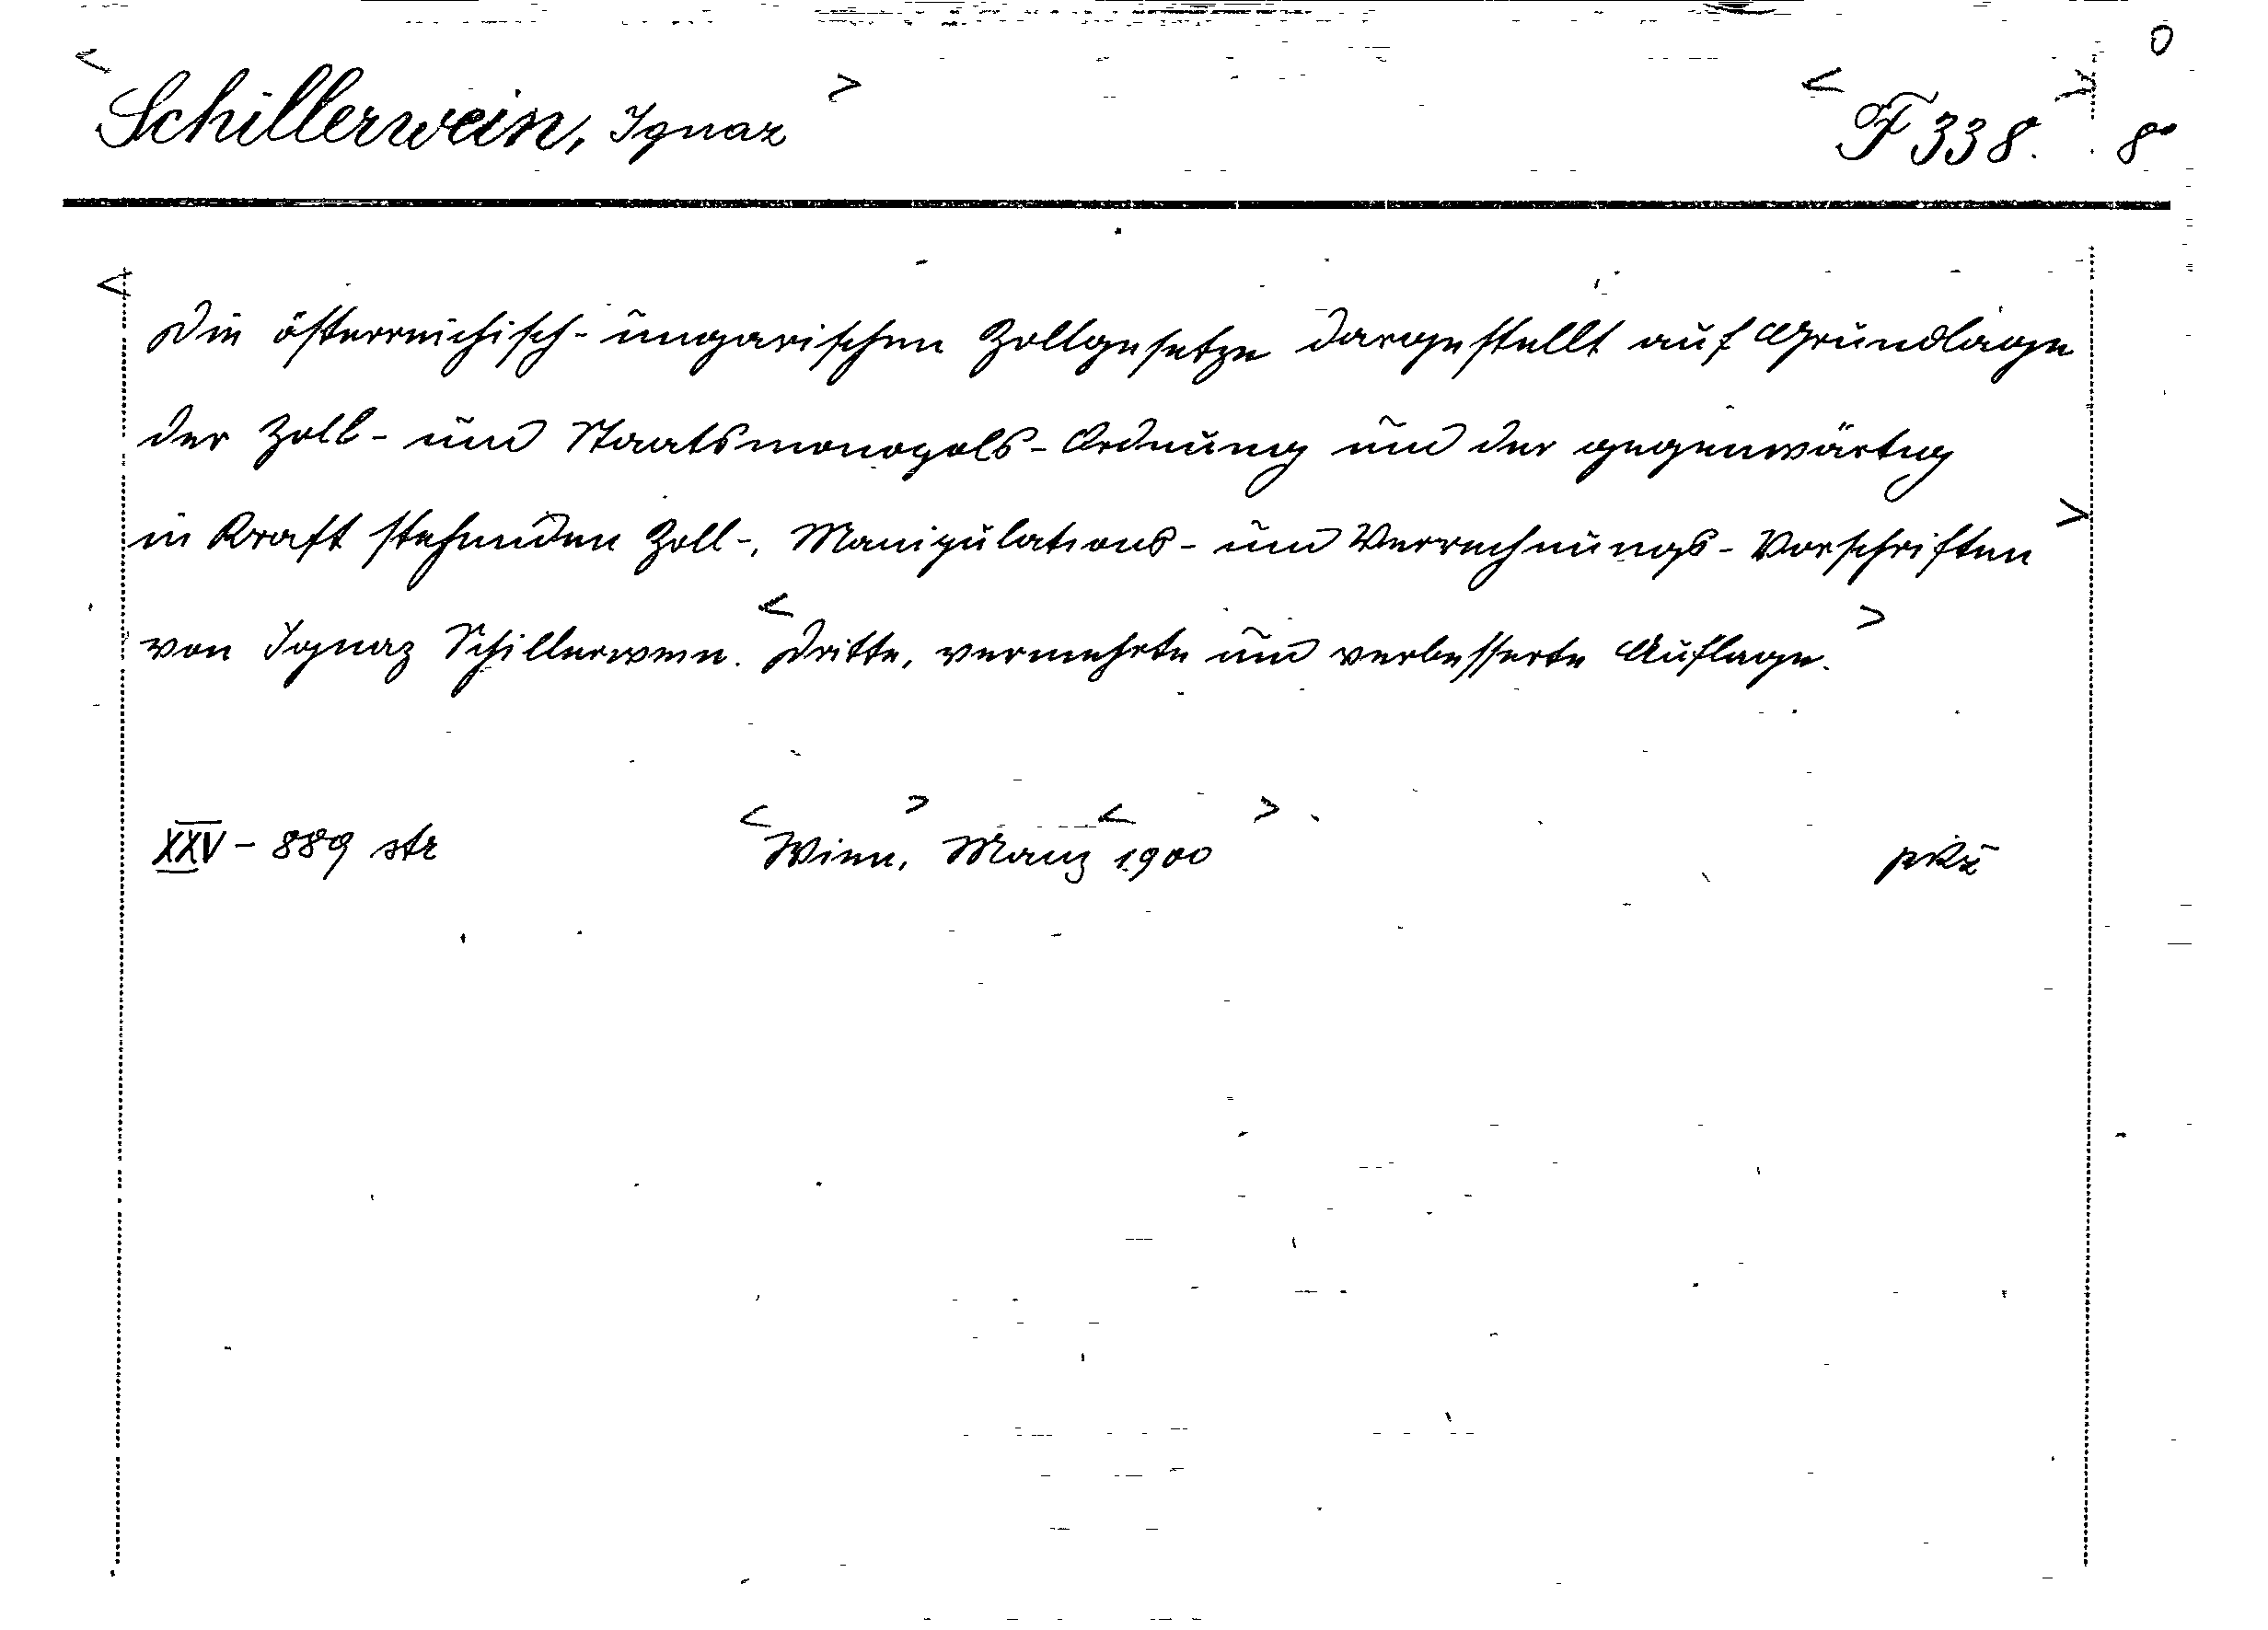 Schillerwein, Ignaz
F 338. 8°
Die österreichisch-ungarischen Zollgesetze dargestellt auf Grundlage
der Zoll- und Staatsmonopols-Ordnung und der gegenwärtig
in Kraft stehenden Zoll-, Manipulations- und Verrechnungs-Vorschriften
von Ignaz Schillerwein. Dritte, vermehrte und verbesserte Auflage.
XXV - 889 str Wien, Manz 1900